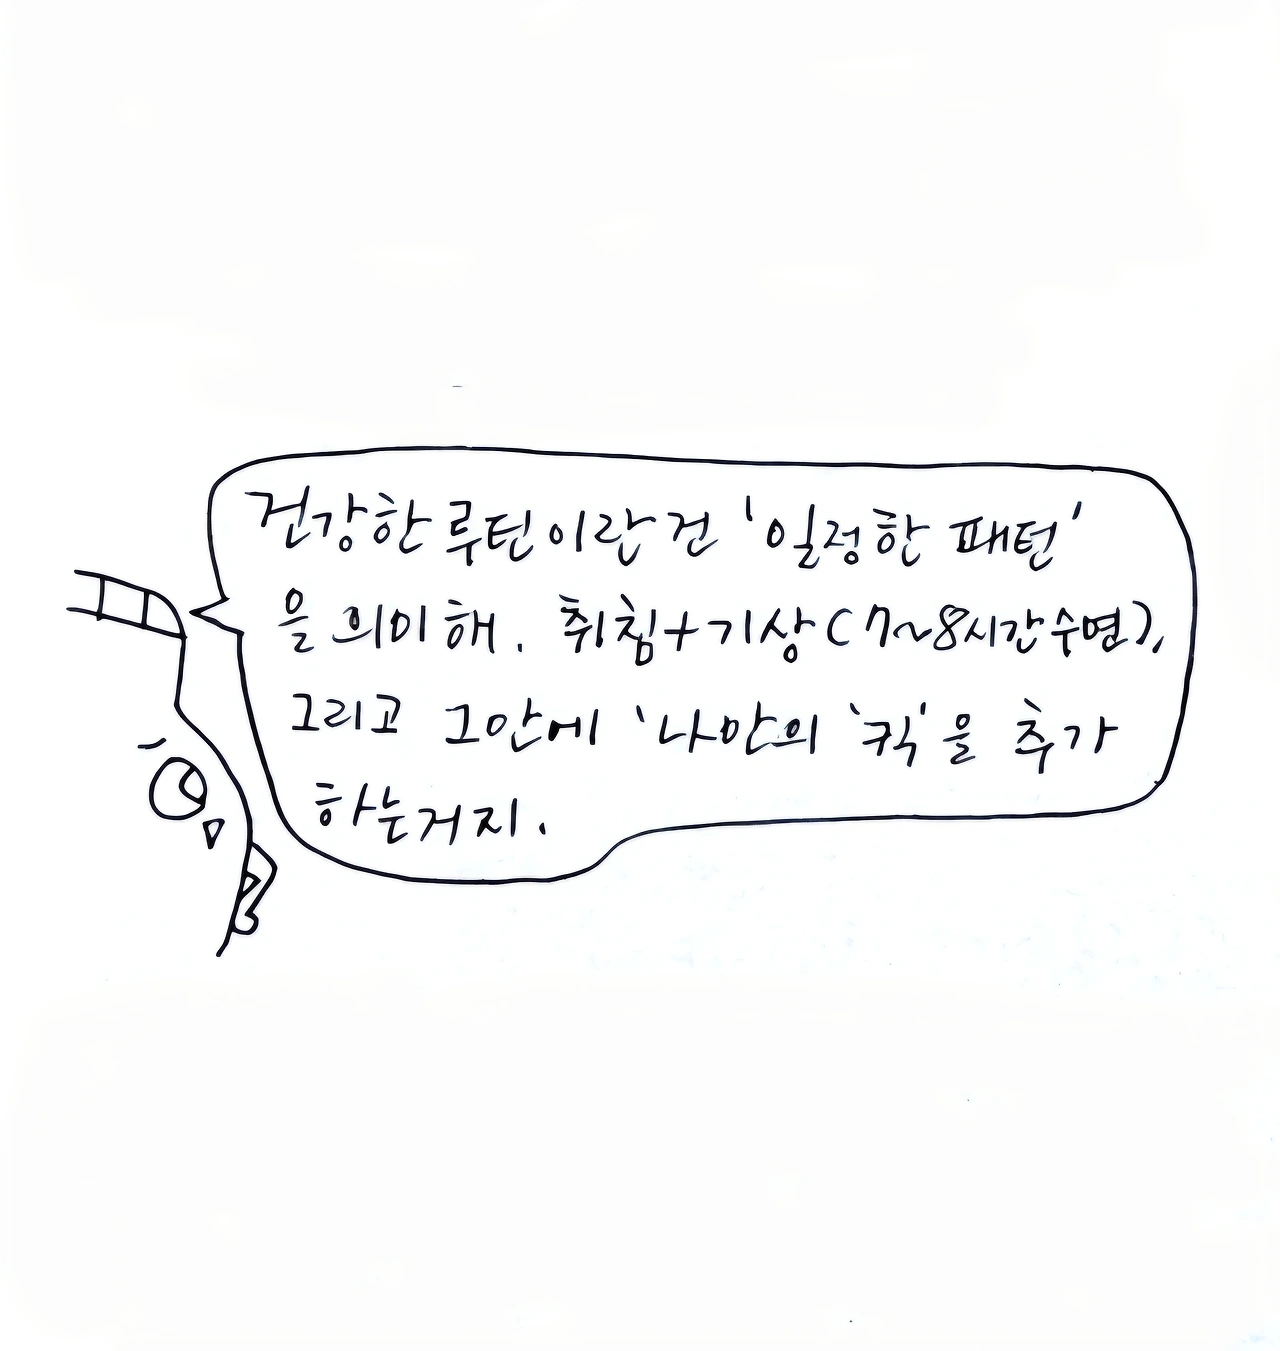 건강한 루틴이란건 '일정한 패턴'
을 의미해. 취침+기상(7~8시간수면),
그리고 그안에 '나만의 '킥'을 추가
하는거지.